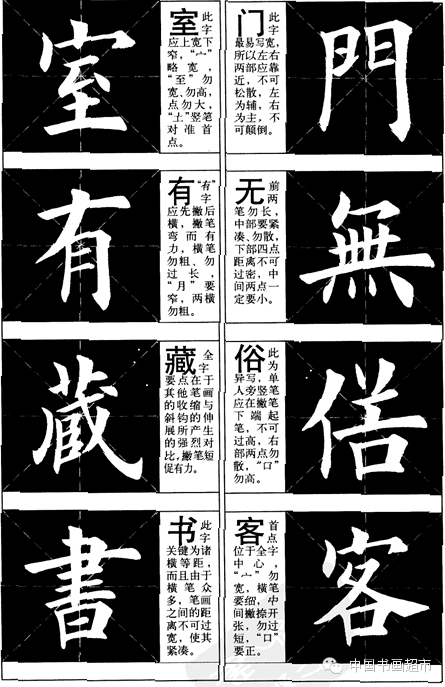 門
门 此字
最易写宽，
所以左右
两部应靠
近，不可
松散，左
为辅，右
为主，不
可颠倒。
無
无 前两
笔勿长，
中部要紧
凑、勿散，
下部四点
距离不可
过密，中
间两点一
定要小。
俗
俗 此为
异写，单
人旁竖笔
应在撇笔
下端起
笔，不可
过高，右
部两点勿
散，“口”
勿高。
客
客 首点
位于全字
中心，
“宀”勿
宽，横笔
要细，中
间撇捺开
张，勿过
短，“口”
要正。
室
室 此字
应上宽下
窄，“宀”
略宽，
“至”勿
宽、勿高，
点勿大，
“土”竖笔
对准首
点。
有
有 “有”字
应先撇后
横，撇笔
弯而有
力，横笔
勿粗、勿
过长，
“月”要
窄，两横
勿粗。
藏
藏 全字
要点在于
其他笔画
的收缩与
斜钩的伸
展所产生
的强烈对
比，撇笔短
促有力。
書
书 此字
关键为诸
横等距，
而且由于
横笔众
多，笔画
之间的距
离不可过
宽，使其
紧凑。
中国书画超市